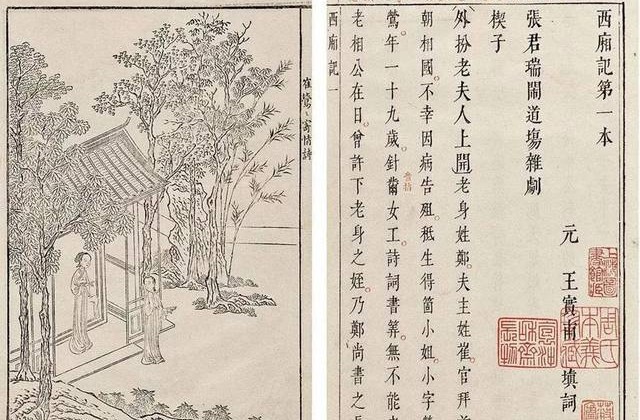 西廂記第一本
元 王實甫填詞
張君瑞閙道塲雜劇
楔子
外扮老夫人上開老身姓鄭。夫主姓崔。官拜前
朝相國。不幸因病告殂。秪生得箇小姐。小字
鶯。年一十九歲。針黹女工。詩詞書筭。無不能
老相公在日。曾許下老身之姪。乃鄭尚書之長
西廂記 一
崔鶯〻寄情詩